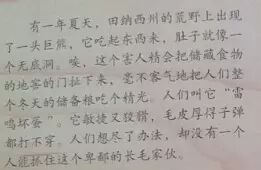 有一年夏天，田纳西州的荒野上出现
了一头巨熊，它吃起东西来，肚子就像一
个无底洞。唉，这个害人精会把储藏食物
的地窖的门扯下来，毫不客气地把人们整
个冬天的储备粮吃个精光。人们叫它“雷
鸣坏蛋”。它敏捷又狡猾，毛皮厚得子弹
都打不穿。人们想尽了办法，却没有一个
人能抓住这个卑鄙的长毛家伙。